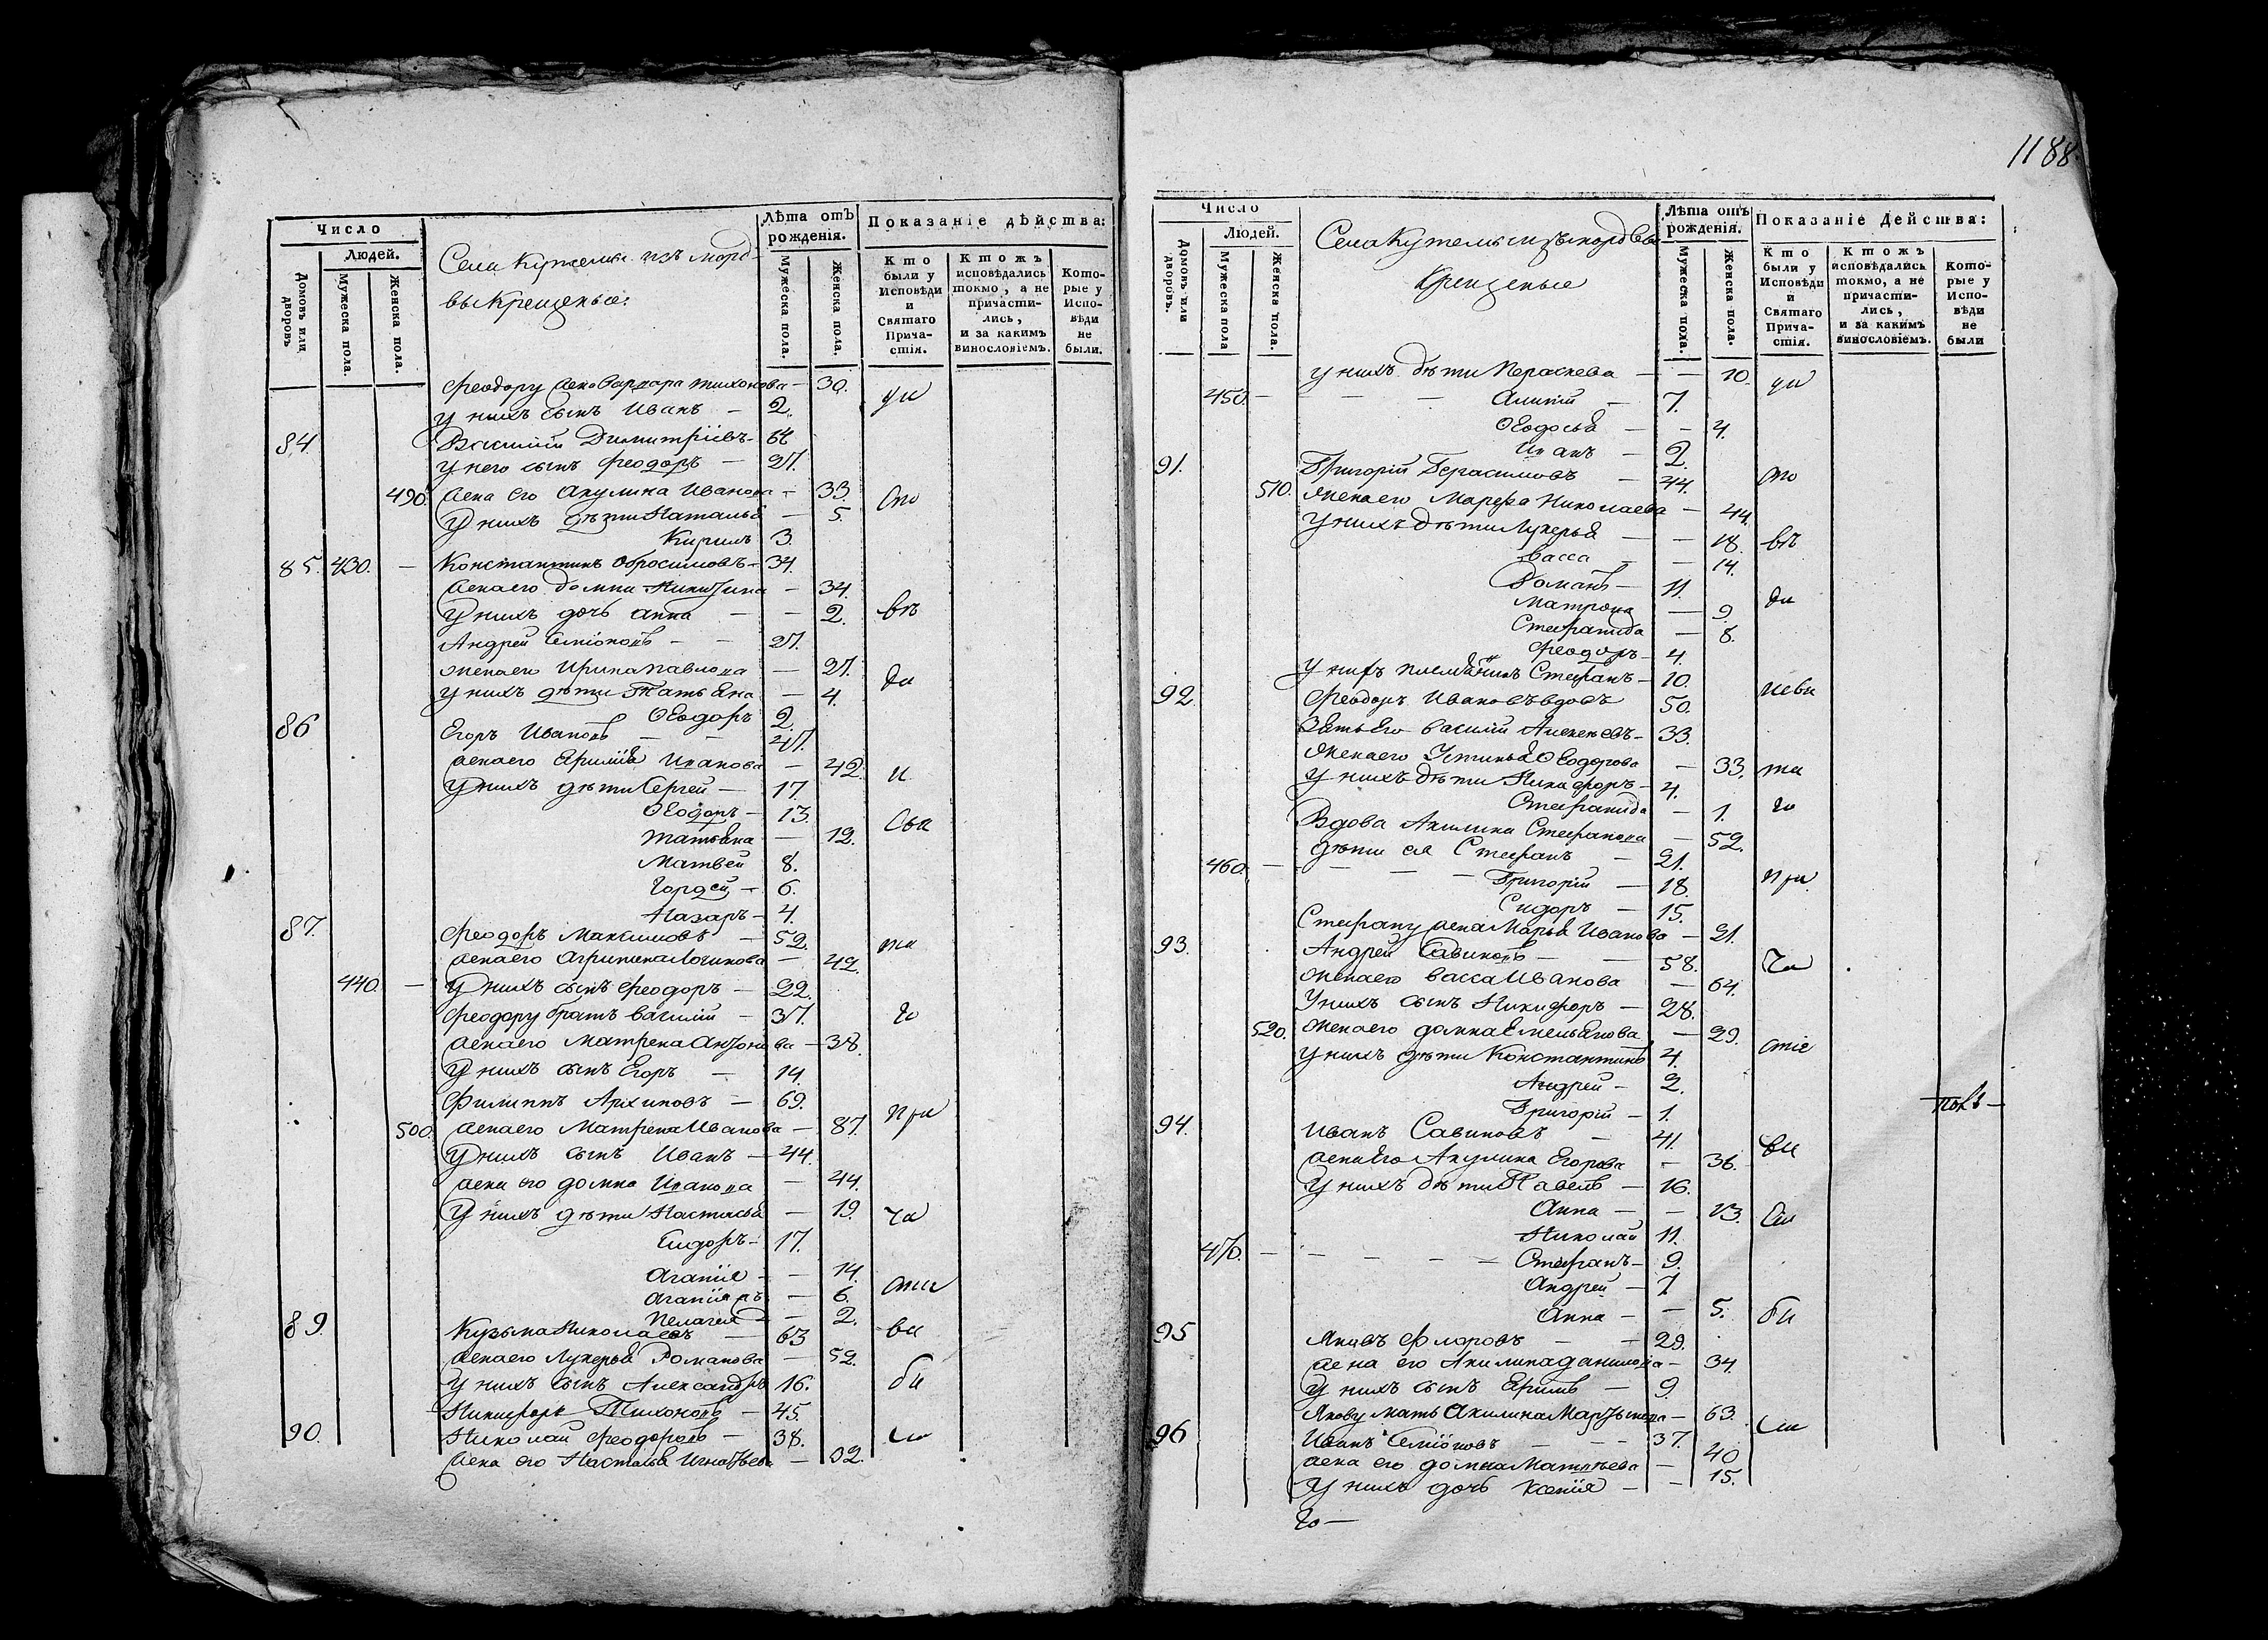 1188
Число
Людей.
Домовъ или дворовъ
Мужеска пола.
Женска пола.
Села Кутели изъ морд-
вы крещеные:
Лѣта отъ рожденія.
Мужеска пола.
Женска пола.
Показаніе дѣйства:
Кто были у Исповѣди и Святаго Прича-стія.
Ктожъ исповѣдались токмо, а не причасти-лись, и за какимъ винословіемъ.
Кото-рые у Испо-вѣди не были.
Феодору жена Варвара тихонова — 30.
у нихъ сынъ Иванъ — 2. ди
84. Василий Димитріевъ — 64
у него сынъ Феодоръ — 27.
490. жена его Акулина Иванова — 33. сто
у нихъ дѣти Наталья — 5.
Кирилъ 3.
85. 430. — Константинъ Обросимовъ — 34.
жена его домна Никитина — 34.
у нихъ дочь анна — — 2. въ
Андрей Семіоновъ — — 27.
жена его Ирина павлова — 27.
у нихъ дѣти Татьяна — 4. ди
Ѳеодоръ 2.
86 Егоръ Ивановъ — — 47.
жена его Ефимія Иванова — 42. и
у нихъ дѣти Сергей — 17.
Ѳеодоръ — 13
татьяна — 12. Свя
Матвей 8.
Гордей — 6.
Назаръ — 4.
87. Феодоръ Максимовъ — 52. та
жена его Агрипина Логинова — 42.
440. — у нихъ сынъ Феодоръ — 22.
Феодору братъ василий — 37. го
жена его Матрена Антонова — 38.
у нихъ сынъ Егоръ — 14.
Филиппъ Архиповъ — 69.
500. жена его Матрена Иванова — 87. при
у нихъ сынъ Иванъ — 44.
жена его домна Иванова — 44.
у нихъ дѣти Настасья — 19. ча
Сидоръ — 17.
Агапія — — 14.
Агапія — 6. стіи
Пелагея — 2.
89. Кузьма Николаевъ — 63 вы
жена его Лукерья Романова — 52.
у нихъ сынъ Александръ 16. бы
Никифоръ Тихоновъ — 45.
90. Николай Феодоровъ — 38. ли
жена его Настасья Игнатьева — 32.
Число
Людей.
Домовъ или дворовъ.
Мужеска пола
Женска пола.
Села Кутели изъ мордвы
крещеные
Лѣта отъ рожденія.
Мужеска пола.
Женска пола.
Показаніе Дейсшва:
Кто были у Исповѣди и Святаго Прича-стія.
Ктожъ исповѣдались токмо, а не причасти-лись, и за какимъ винословіемъ.
Кото-рые у Испо-вѣди не были
у нихъ дѣти Параскева — — 10. ди
450. — — — — Алипій — 7.
Ѳеодосья — — 4.
Иванъ — 2.
91. Григорій Герасимовъ — 44. сто
510. Жена его Марфа Николаева — 44.
у нихъ дѣти Лукерья — — 18. въ
васса — — 14.
Романъ — 11.
Матрона — 9. ди
Стефанида — 8.
Феодоръ — 4.
у нихъ племянникъ Стефанъ — 10.
92. Феодоръ Ивановъ вдовъ 50.
Зять его василий Алексеевъ — 33.
Жена его Устинья Ѳеодорова — 33. та
у нихъ дѣти Никифоръ — 4.
Стефанида — 1. го
Вдова Акилина Стефанова — 52.
дѣти ея Стефанъ — 21.
460. — — — — Григорій — 18. при
Сидоръ — 15.
Стефану жена Марья Иванова — 21.
93. Андрей Савиновъ — — 58. ча
жена его васса Иванова — 64.
у нихъ сынъ Никифоръ — 28.
520. жена его домна Емельянова — 29. стіе
у нихъ дѣти Константинъ 4.
Андрей — 2.
Григорій — 1.
94. Иванъ Савиновъ — 41. вы
жена его Акулина Егорова — 36.
у нихъ дѣти Павелъ — 16.
Анна — — 13.
Николай 11.
470. — — — — — Стефанъ — 9.
Андрей — 7
Анна — — 5. бы
95 Яковъ Флоровъ — — 29.
жена его Акилина данилова — 34
у нихъ сынъ Ефимъ — 9.
Якову мать Акилина Мартынова — 63. ли
96 Иванъ Семіоновъ — — 37.
жена его домна Матвѣева — 40
у нихъ дочь Ксенія — — 15.
го —